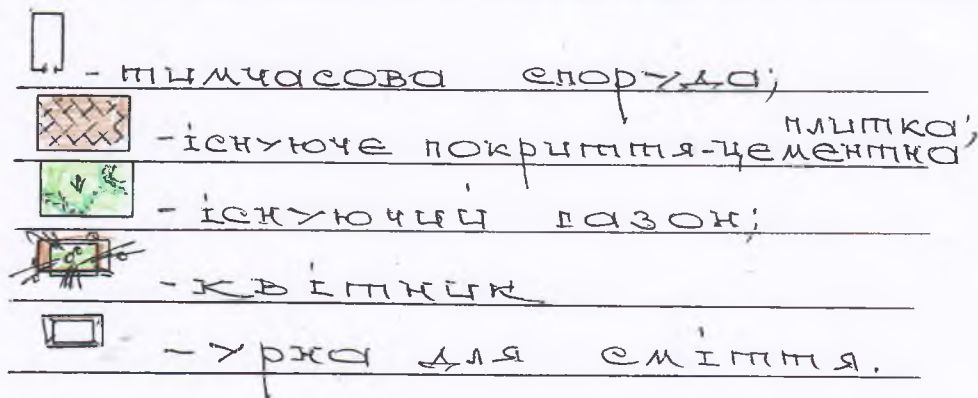 - тимчасова споруда;
- існуюче покриття-цементна плитка;
- існуючий газон;
- квітник
- урна для сміття.